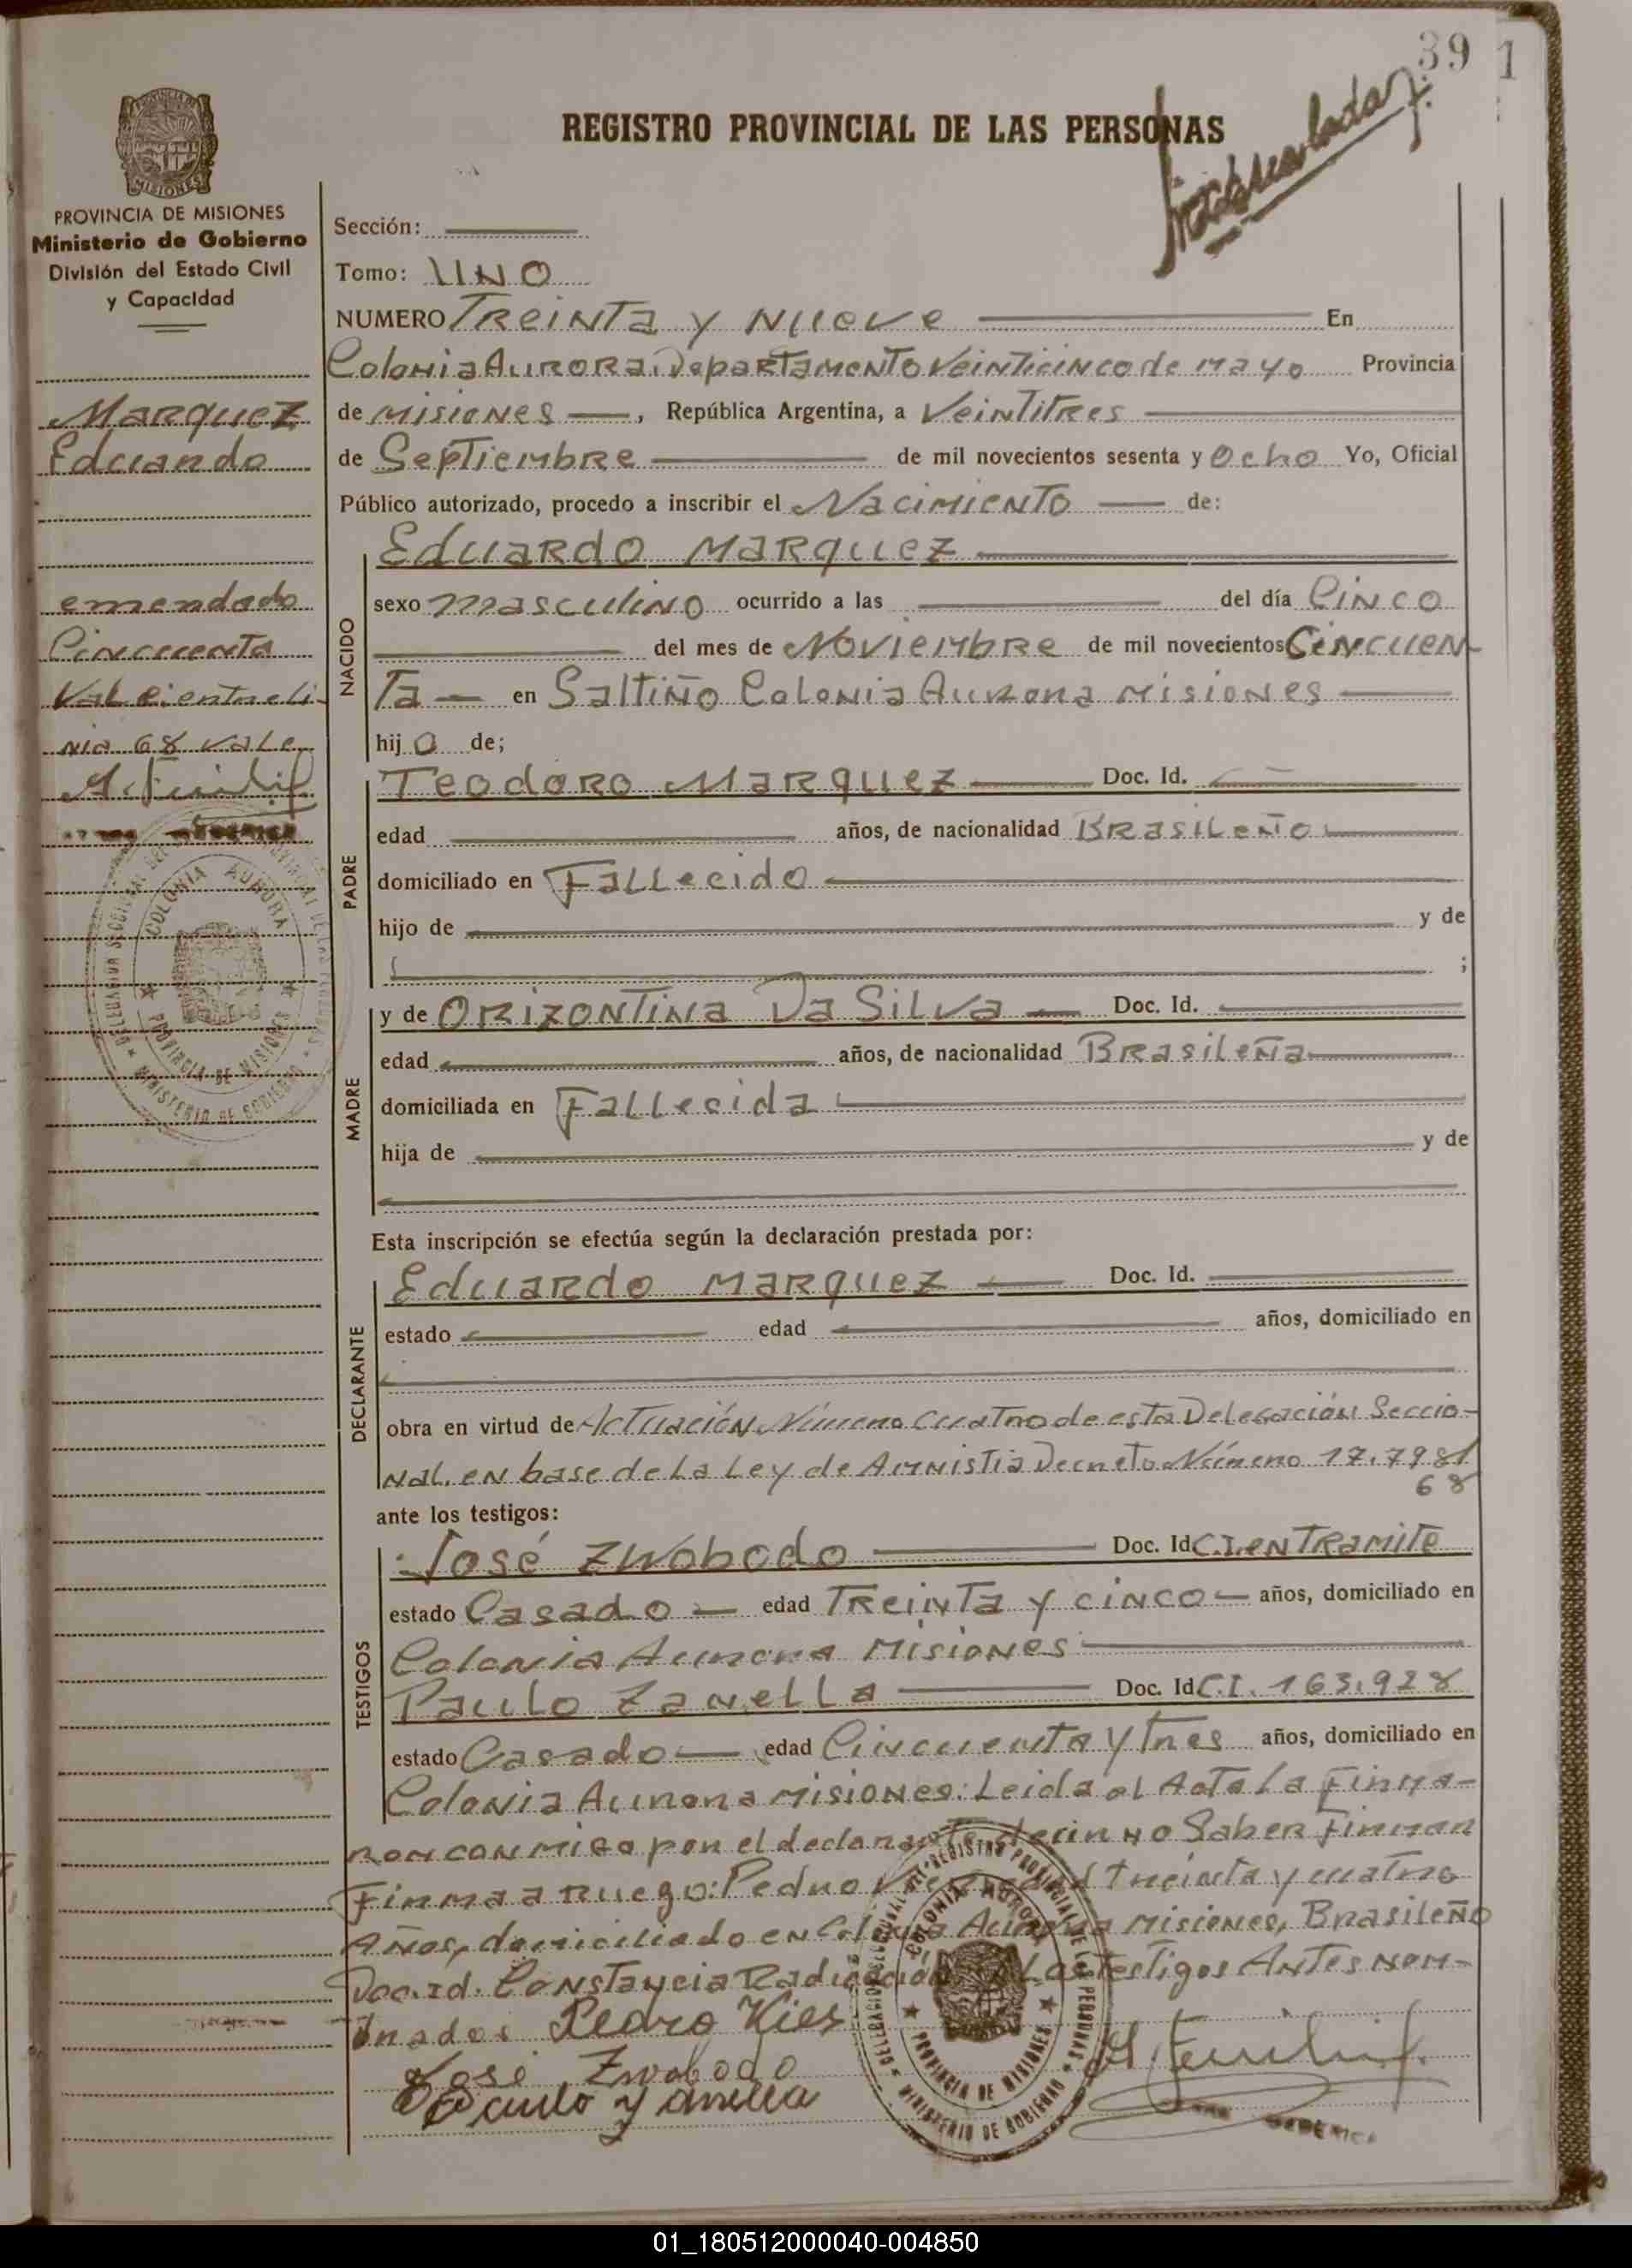 39 1
REGISTRO PROVINCIAL DE LAS PERSONAS
PROVINCIA DE MISIONES
Ministerio de Gobierno
División del Estado Civil
y Capacidad
Marquez
Eduardo
emendado
Cincuenta
Vale
68 vale
Sección:
Tomo: UNO
NUMERO Treinta y Nueve En
Colonia Aurora, Departamento Veinticinco de Mayo Provincia
de Misiones, República Argentina, a Veintitres
de Septiembre de mil novecientos sesenta y Ocho Yo, Oficial
Público autorizado, procedo a inscribir el Nacimiento de:
NACIDO
Eduardo Marquez
sexo masculino ocurrido a las del día Cinco
del mes de Noviembre de mil novecientos Cincuen-
Ta en Saltiño Colonia Aurora Misiones
hijo de;
PADRE
Teodoro Marquez Doc. Id.
edad años, de nacionalidad Brasileño
domiciliado en Fallecido
hijo de y de
;
MADRE
y de Orizontina Da Silva Doc. Id.
edad años, de nacionalidad Brasileña
domiciliada en Fallecida
hija de y de
Esta inscripción se efectúa según la declaración prestada por:
DECLARANTE
Eduardo Marquez Doc. Id.
estado edad años, domiciliado en
obra en virtud de Actuación Número Cuatro de esta Delegación Seccio-
nal, en base de La Ley de Amnistia Decreto Número 17.798/
68
ante los testigos:
TESTIGOS
José Zwobodo Doc. Id C.I. en Tramite
estado Casado edad Treinta y cinco años, domiciliado en
Colonia Aurora Misiones
Paulo Zanella Doc. Id C.I. 163.928
estado Casado edad Cincuenta y Tres años, domiciliado en
Colonia Aurora Misiones: Leida el Acta La Firma-
ron conmigo por el declarante decir no Saber Firmar
Firma a ruego: Pedro Treinta y cuatro
Años, domiciliado en Colonia Aurora Misiones, Brasileño
Doc. Id. Constancia Radicación Los testigos Antes nom-
brados Pedro Kies
José Zwobodo
Paulo Zanella
COLONIA AURORA
PROVINCIA DE MISIONES
MINISTERIO DE GOBIERNO
01_180512000040-004850